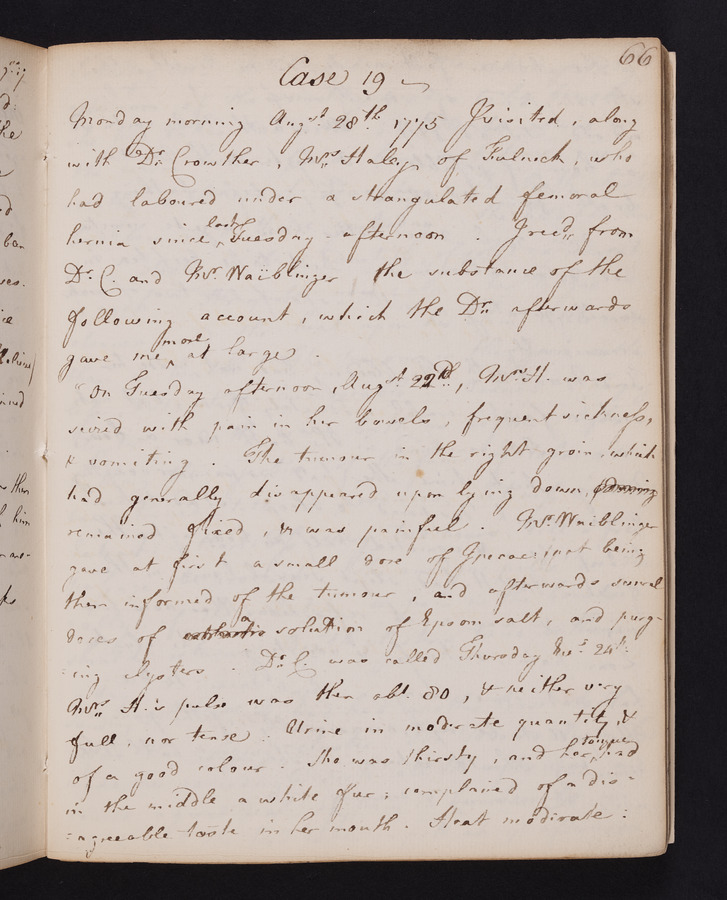 66
Case 19
Monday morning Augst. 28th. 1775 I visited, along
with Dr. Crowther, Mrs. Haley of Fulneck, who
had laboured under a strangulated femoral
hernia since last Tuesday-afternoon. I recd. from
Dr. C. and Mr. Waiblinger the substance of the
following account, which the Dr. afterwards
gave me more at large.
"On Tuesday afternoon, Augst. 22d., Mrs. H. was
seized with pain in her bowels, frequent sickness,
& vomiting. The tumour in the right groin, which
had generally disappeared upon lying down,
remained fixed, & was painful. Mr. Waiblinger
gave at first a small dose of Ipecac: not being
then informed of the tumour, and afterwards several
doses of a solution of Epsom salt, and purg-
-ing clysters. Dr. C. was called Thursday 24th.
Mrs. H.'s pulse was then abt. 80, & neither very
full, nor tense. Urine in moderate quantity, &
of a good colour. She was thirsty, and her tongue had
in the middle a white fur; complained of a dis-
-agreeable taste in her mouth. Heat moderate: